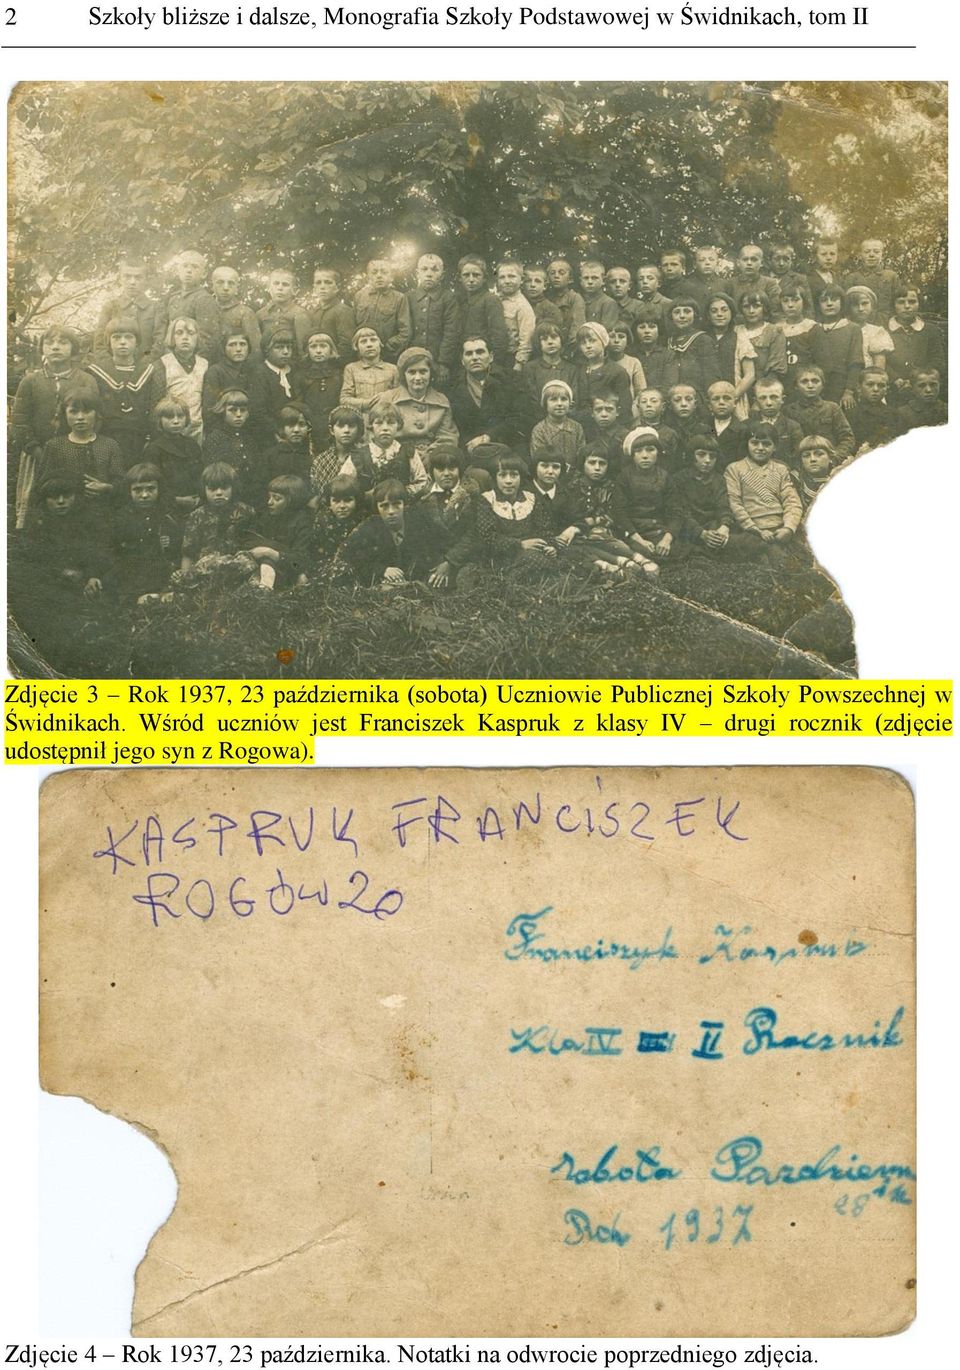 2 Szkoły bliższe i dalsze, Monografia Szkoły Podstawowej w Świdnikach, tom II
Zdjęcie 3 – Rok 1937, 23 października (sobota) Uczniowie Publicznej Szkoły Powszechnej w
Świdnikach. Wśród uczniów jest Franciszek Kaspruk z klasy IV – drugi rocznik (zdjęcie
udostępnił jego syn z Rogowa).
KASPRUK FRANCISZEK
ROGÓW 20
Franciszyk
Kla IV II Rocznik
sobota Pazdziern
Rok 1937
Zdjęcie 4 – Rok 1937, 23 października. Notatki na odwrocie poprzedniego zdjęcia.